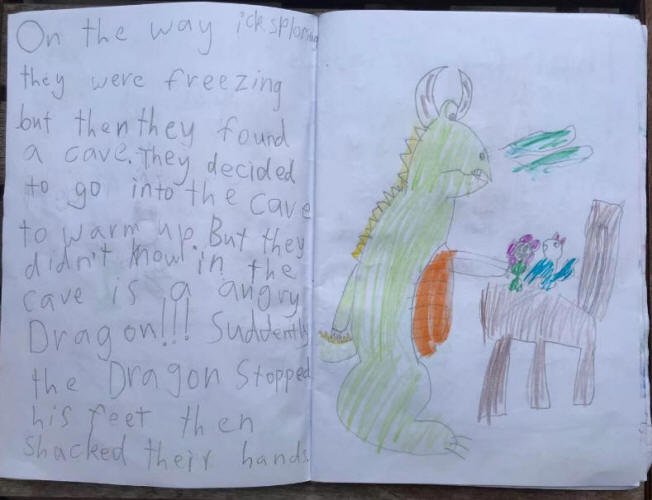 On the way icksploring
they were freezing
but then they found
a cave. They decided
to go into the cave
to warm up. But they
didn't know in the
cave is a angry
Dragon!!! Suddently
the Dragon stopped
his feet then
shacked their hands.